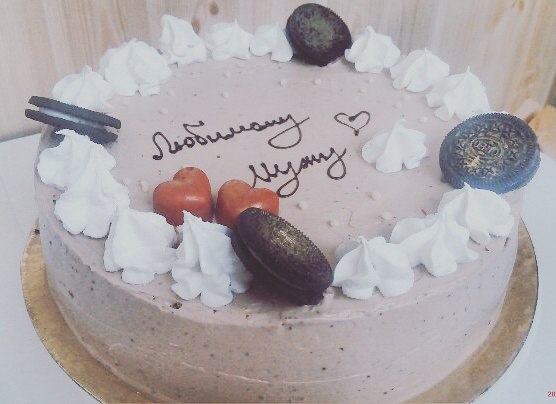 Любимому
Мужу
20